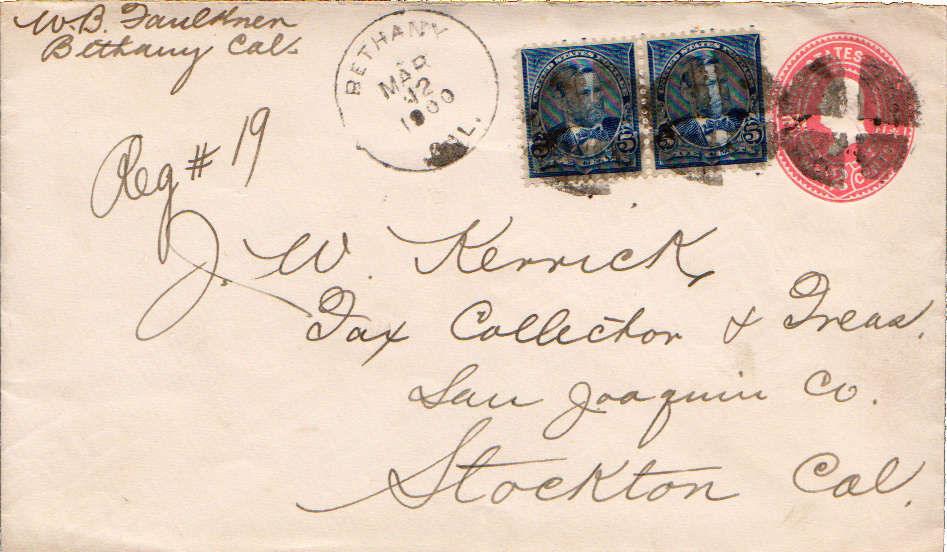 W.B. Faulkner
Bethany Cal.
BETHANY
MAR
12
1900
CAL.
UNITED STATES POSTAGE
5 5
UNITED STATES POSTAGE
5 5
STATES
Reg # 19
J. W. Kerrick,
Tax Collector & Treas.
San Joaquin Co.
Stockton Cal.